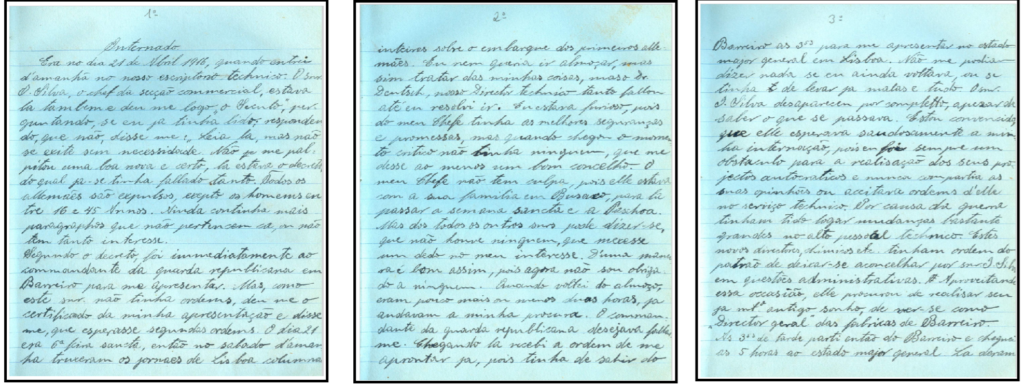 1º
Internado
Era no dia 21 de Abril 1916, quando entrei
d'amanhã no nosso escriptorio technico. O snr.
J. Silva, o chef da secção commercial, estava
la tambem e deu me logo, o Seculo, per
guntando, se eu ja tinha lido; responden
do, que não, disse me: Leia la, mas não
se exite sem necessidade. Não me pal
pitou uma boa nova e certo, la estava o decreto
do qual ja se tinha fallado tanto. Todos os
allemães são expulsos, excepto os homens en
tre 16 e 45 Annos. Ainda continha mais
paragraphos que não pertencem ca, ou não
tem tanto interesse.
Segundo o decreto, foi immediatamente ao
commandante da guarda republicana em
Barreiro para me apresentar. Mas, como
este snr. não tinha ordems, deu me o
certificado da minha apresentação e disse
me, que esperasse segundas ordems. O dia 21
era 6ª feira sancta, então no sabado d'ama
nhã trouceram os jornaes de Lisboa columna
2º
inteiras sobre o embarque dos primeiros alle
mães. Eu nem queria ir almoçar, mas
sim tratar das minhas coisas, mas o Dr.
Deutsch, nosso Director technico tanto fallou
até eu resolvi ir. Eu estava furioso, pois
do meu Chefe tinha as melhores seguranças
e promessas, mas quando chegou o momen
to critico não tinha ninguem, que me
desse ao menos um bom concelho. O
meu Chefe não tem culpa, pois elle estava
com a sua familia em Busaco, para la
passar a semana sancta e a Paschoa.
Mas dos todos os outros snrs pode dizer-se,
que não houve ninguem, que mecesse
um dedo no meu interesse. D'uma manei
ra é bom assim, pois agora não sou obriga
do a ninguem. Quando voltei do almoço,
eram pouco mais ou menos duas horas, ja
andavam a minha procura. O comman
dante da guarda republicana desejava fallar
me. Chegando la recebi a ordem de me
aprontar ja, pois tinha de sahir do
3º
Barreiro as 3ras para me apresentar no estado
major general em Lisboa. Não me podiam
dizer nada se eu ainda voltava, ou se
tinha de levar ja malas e tudo. O snr.
J. Silva desapareceu por completto, apezar de
saber o que se passava. Estou convencido,
que elle esperava saudosamente a mi
nha internação, pois eu foi sempre um
obstaculo para a realisação dos seus pro
jectos automaticos e nunca compartia as
suas opiniões ou aceitava ordems d'elle
no serviço technico. Por causa da guerra
tinham tido logar mudanças bastante
grandes no alto pessoal technico. Estes
novos directores, tinham ordem do
patrão de deixar-se aconcelhar por snr. J. Silva
em questões administrativas. Aproveitando
essa occasião, elle procurou de realisar seu
ja mto antigo sonho, de ver-se como
Director geral das fabricas de Barreiro.
As 3ras de tarde parti então do Barreiro e cheguei
as 5 horas ao estado major general. La deram